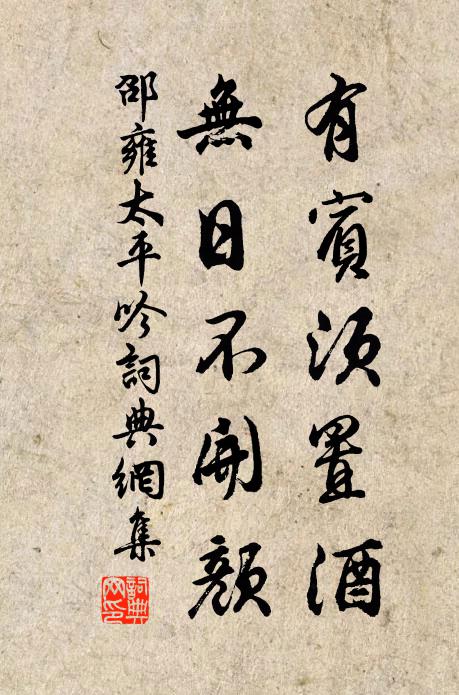 有賓須置酒
無日不開顏
邵雍太平吟詞典網集
詞典
网印